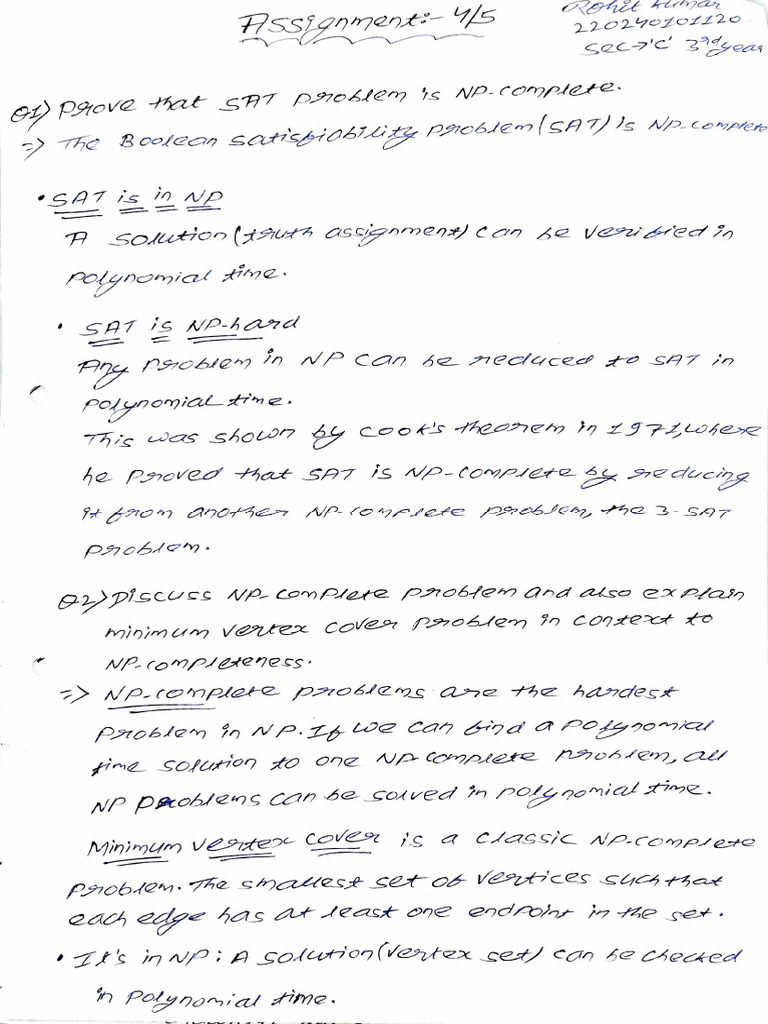 Assignment:- 4/5
Rohit Kumar
220240101120
Sec→'C' 3rd year
Q1) Prove that SAT problem is NP-complete.
=> The Boolean satisfiability problem (SAT) is NP-complete
• SAT is in NP
A solution (truth assignment) can be verified in
polynomial time.
• SAT is NP-hard
Any problem in NP can be reduced to SAT in
polynomial time.
This was shown by Cook's theorem in 1971, where
he proved that SAT is NP-complete by reducing
it from another NP-complete problem, the 3-SAT
problem.
Q2) Discuss NP-complete problem and also explain
minimum vertex cover problem in context to
NP-completeness.
=> NP-complete problems are the hardest
problem in NP. If we can find a polynomial
time solution to one NP-complete problem, all
NP problems can be solved in polynomial time.
Minimum vertex cover is a classic NP-complete
problem. The smallest set of vertices such that
each edge has at least one endpoint in the set.
• It's in NP: A solution (vertex set) can be checked
in polynomial time.